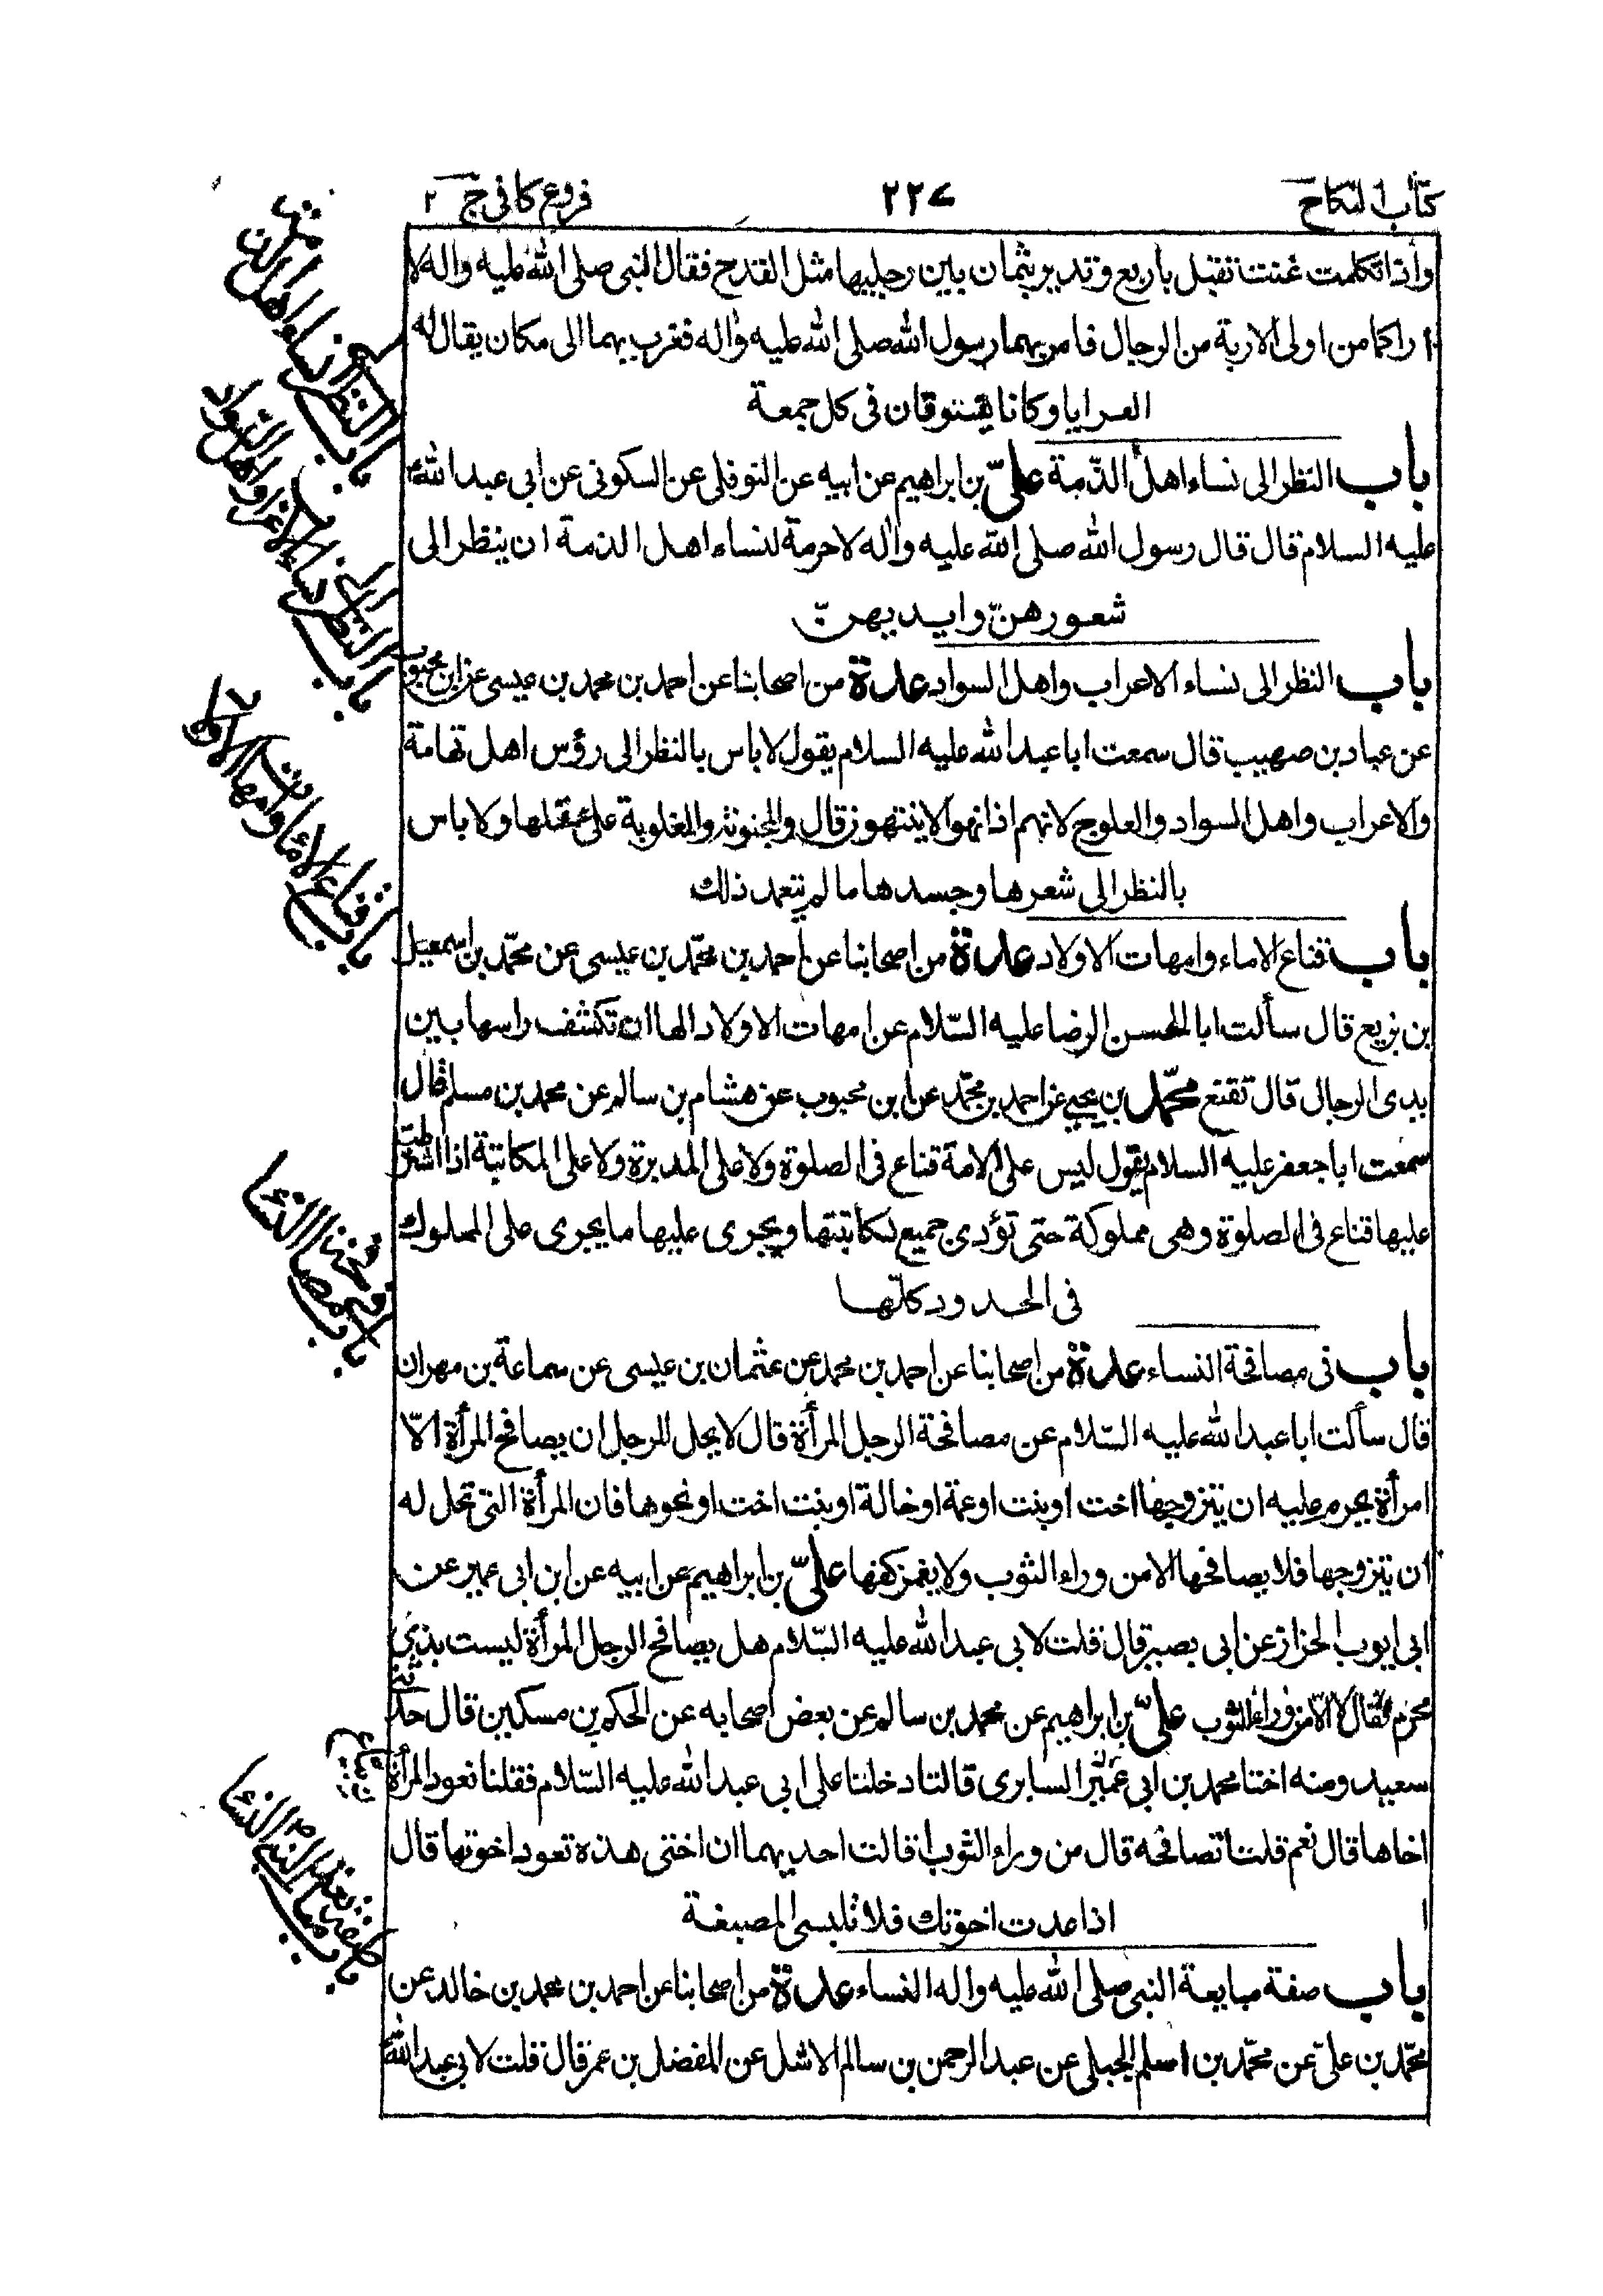 كتاب النكاح
٢٢٧
فروع كافى ج ٢
واذا تكلمت غنت تقبل باربع وتدبر بثمان بين رجليها مثل القدح فقال النبى صلى الله عليه واله لا
اراكما من اولى الاربة من الرجال فامر بهما رسول الله صلى الله عليه واله فغرب بهما الى مكان يقال له
العرايا وكانا يتسوقان فى كل جمعة
باب النظر الى نساء اهل الذّمة علىّ بن ابراهيم عن ابيه عن النوفلى عن السكونى عن ابى عبد الله
عليه السلام قال قال رسول الله صلى الله عليه واله لا حرمة لنساء اهل الذمة ان ينظر الى
شعورهنّ وايديهنّ
باب النظر الى نساء الاعراب واهل السواد عدة من اصحابنا عن احمد بن محمد بن عيسى عن ابن محبوب
عن عباد بن صهيب قال سمعت ابا عبد الله عليه السلام يقول لا باس بالنظر الى رؤس اهل تهامة
والاعراب واهل السواد والعلوج لانهم اذا نهوا لا ينتهون قال والمجنونة والمغلوبة على عقلها ولا باس
بالنظر الى شعرها وجسدها ما لم يتعمد ذلك
باب قناع الاماء وامهات الاولاد عدة من اصحابنا عن احمد بن محمّد بن عيسى عن محمّد بن اسمعيل
بن بزيع قال سألت ابا الحسن الرضا عليه السّلام عن امهات الاولاد الها ان تكشف راسها بين
يدى الرجال قال تقنع محمّد بن يحيى عن احمد بن محمّد عن ابن محبوب عن هشام بن سالم عن محمد بن مسلم قال
سمعت ابا جعفر عليه السلام يقول ليس على الامة قناع فى الصلوة ولا على المدبرة ولا على المكاتبة اذا اشترطت
عليها قناع فى الصلوة وهى مملوكة حتى تؤدى جميع مكاتبتها ويجرى عليها ما يجرى على المملوك
فى الحدود كلّها
باب فى مصافحة النساء عدة من اصحابنا عن احمد بن محمد عن عثمان بن عيسى عن سماعة بن مهران
قال سألت ابا عبد الله عليه السّلام عن مصافحة الرجل المرأة قال لا يحل للرجل ان يصافح المرأة الّا
امرأة يحرم عليه ان يتزوجها اخت او بنت او عمة او خالة او بنت اخت او نحوها فان المرأة التى تحل له
ان يتزوجها فلا يصافحها الا من وراء الثوب ولا يغمز كفها علىّ بن ابراهيم عن ابيه عن ابن ابى عمير عن
ابى ايوب الخزاز عن ابى بصير قال قلت لابى عبد الله عليه السّلام هل يصافح الرجل المرأة ليست بذى
محرم فقال لا الّا من وراء الثوب علىّ بن ابراهيم عن محمد بن سالم عن بعض اصحابه عن الحكم بن مسكين قال حدثتنى
سعيد ومنه اختا محمد بن ابى عمير السابرى قالتا دخلنا على ابى عبد الله عليه السّلام فقلنا تعود المرأة
اخاها قال نعم قلنا تصافحه قال من وراء الثوب قالت احديهما ان اختى هذه تعود اخوتها قال
اذا عدت اخوتك فلا تلبسى المصبغة
باب صفة مبايعة النبى صلى الله عليه واله النساء عدة من اصحابنا عن احمد بن محمد بن خالد عن
محمّد بن علىّ عن محمّد بن اسلم الجبلى عن عبد الرحمن بن سالم الاشل عن المفضل بن عمر قال قلت لابى عبد الله
باب النظر الى نساء اهل الذمة
باب النظر الى نساء الاعراب واهل السواد
باب قناع الاماء وامهات الاولاد
باب فى مصافحة النساء
باب صفة مبايعة النبى ص النساء